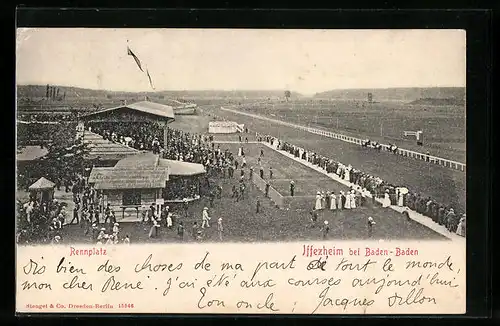 Rennplatz
Iffezheim bei Baden-Baden
Dis bien des choses de ma part à tout le monde,
mon cher René. J'ai été aux courses aujourd'hui
Ton oncle, Jacques Dillon
Stengel & Co. Dresden-Berlin 15846